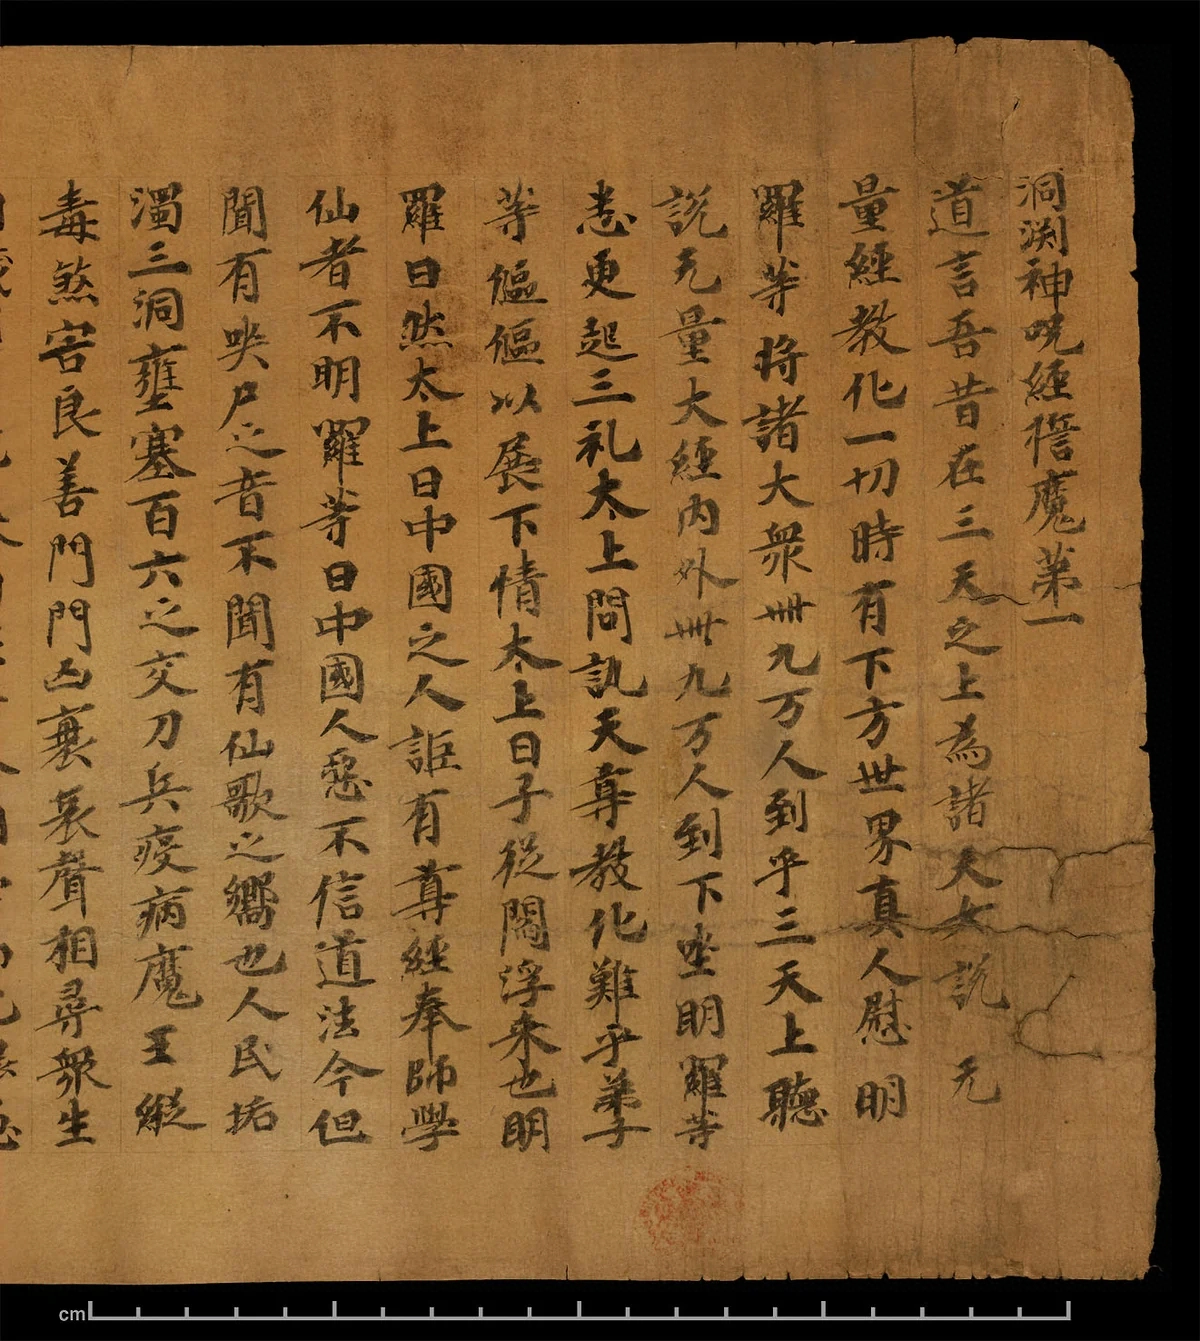 洞渊神呪經誓魔第一
道言吾昔在三天之上為諸天女說无
量經教化一切時有下方世界真人慰明
羅等將諸大衆卌九万人到乎三天上聽
說无量大經内外卌九万人到下坐明羅等
悉更起三礼太上問訊天尊教化難乎弟子
等傴傴以展下情太上曰子從閻浮来也明
羅曰然太上曰中國之人詎有尊經奉師學
仙者不明羅等曰中國人惡不信道法今但
聞有哭尸之音不聞有仙歌之嚮也人民垢
濁三洞壅塞百六之交刀兵疫病魔王縱
毒煞害良善門門凶衰哀聲相尋衆生
cm